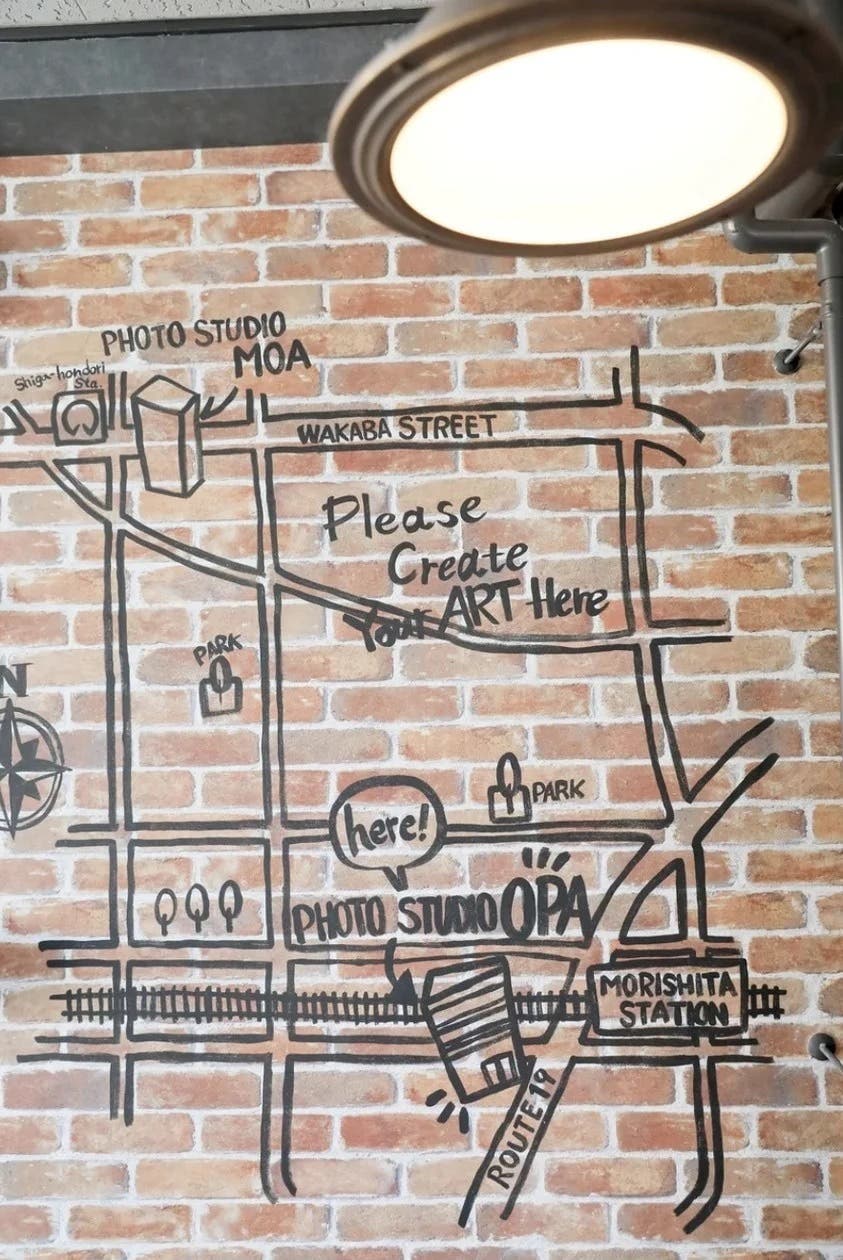 PHOTO STUDIO
MOA
Shiga-hondori
Sta.
WAKABA STREET
Please
Create
Your ART Here
PARK
N
PARK
here!
PHOTO STUDIO OPA
MORISHITA
STATION
ROUTE 19